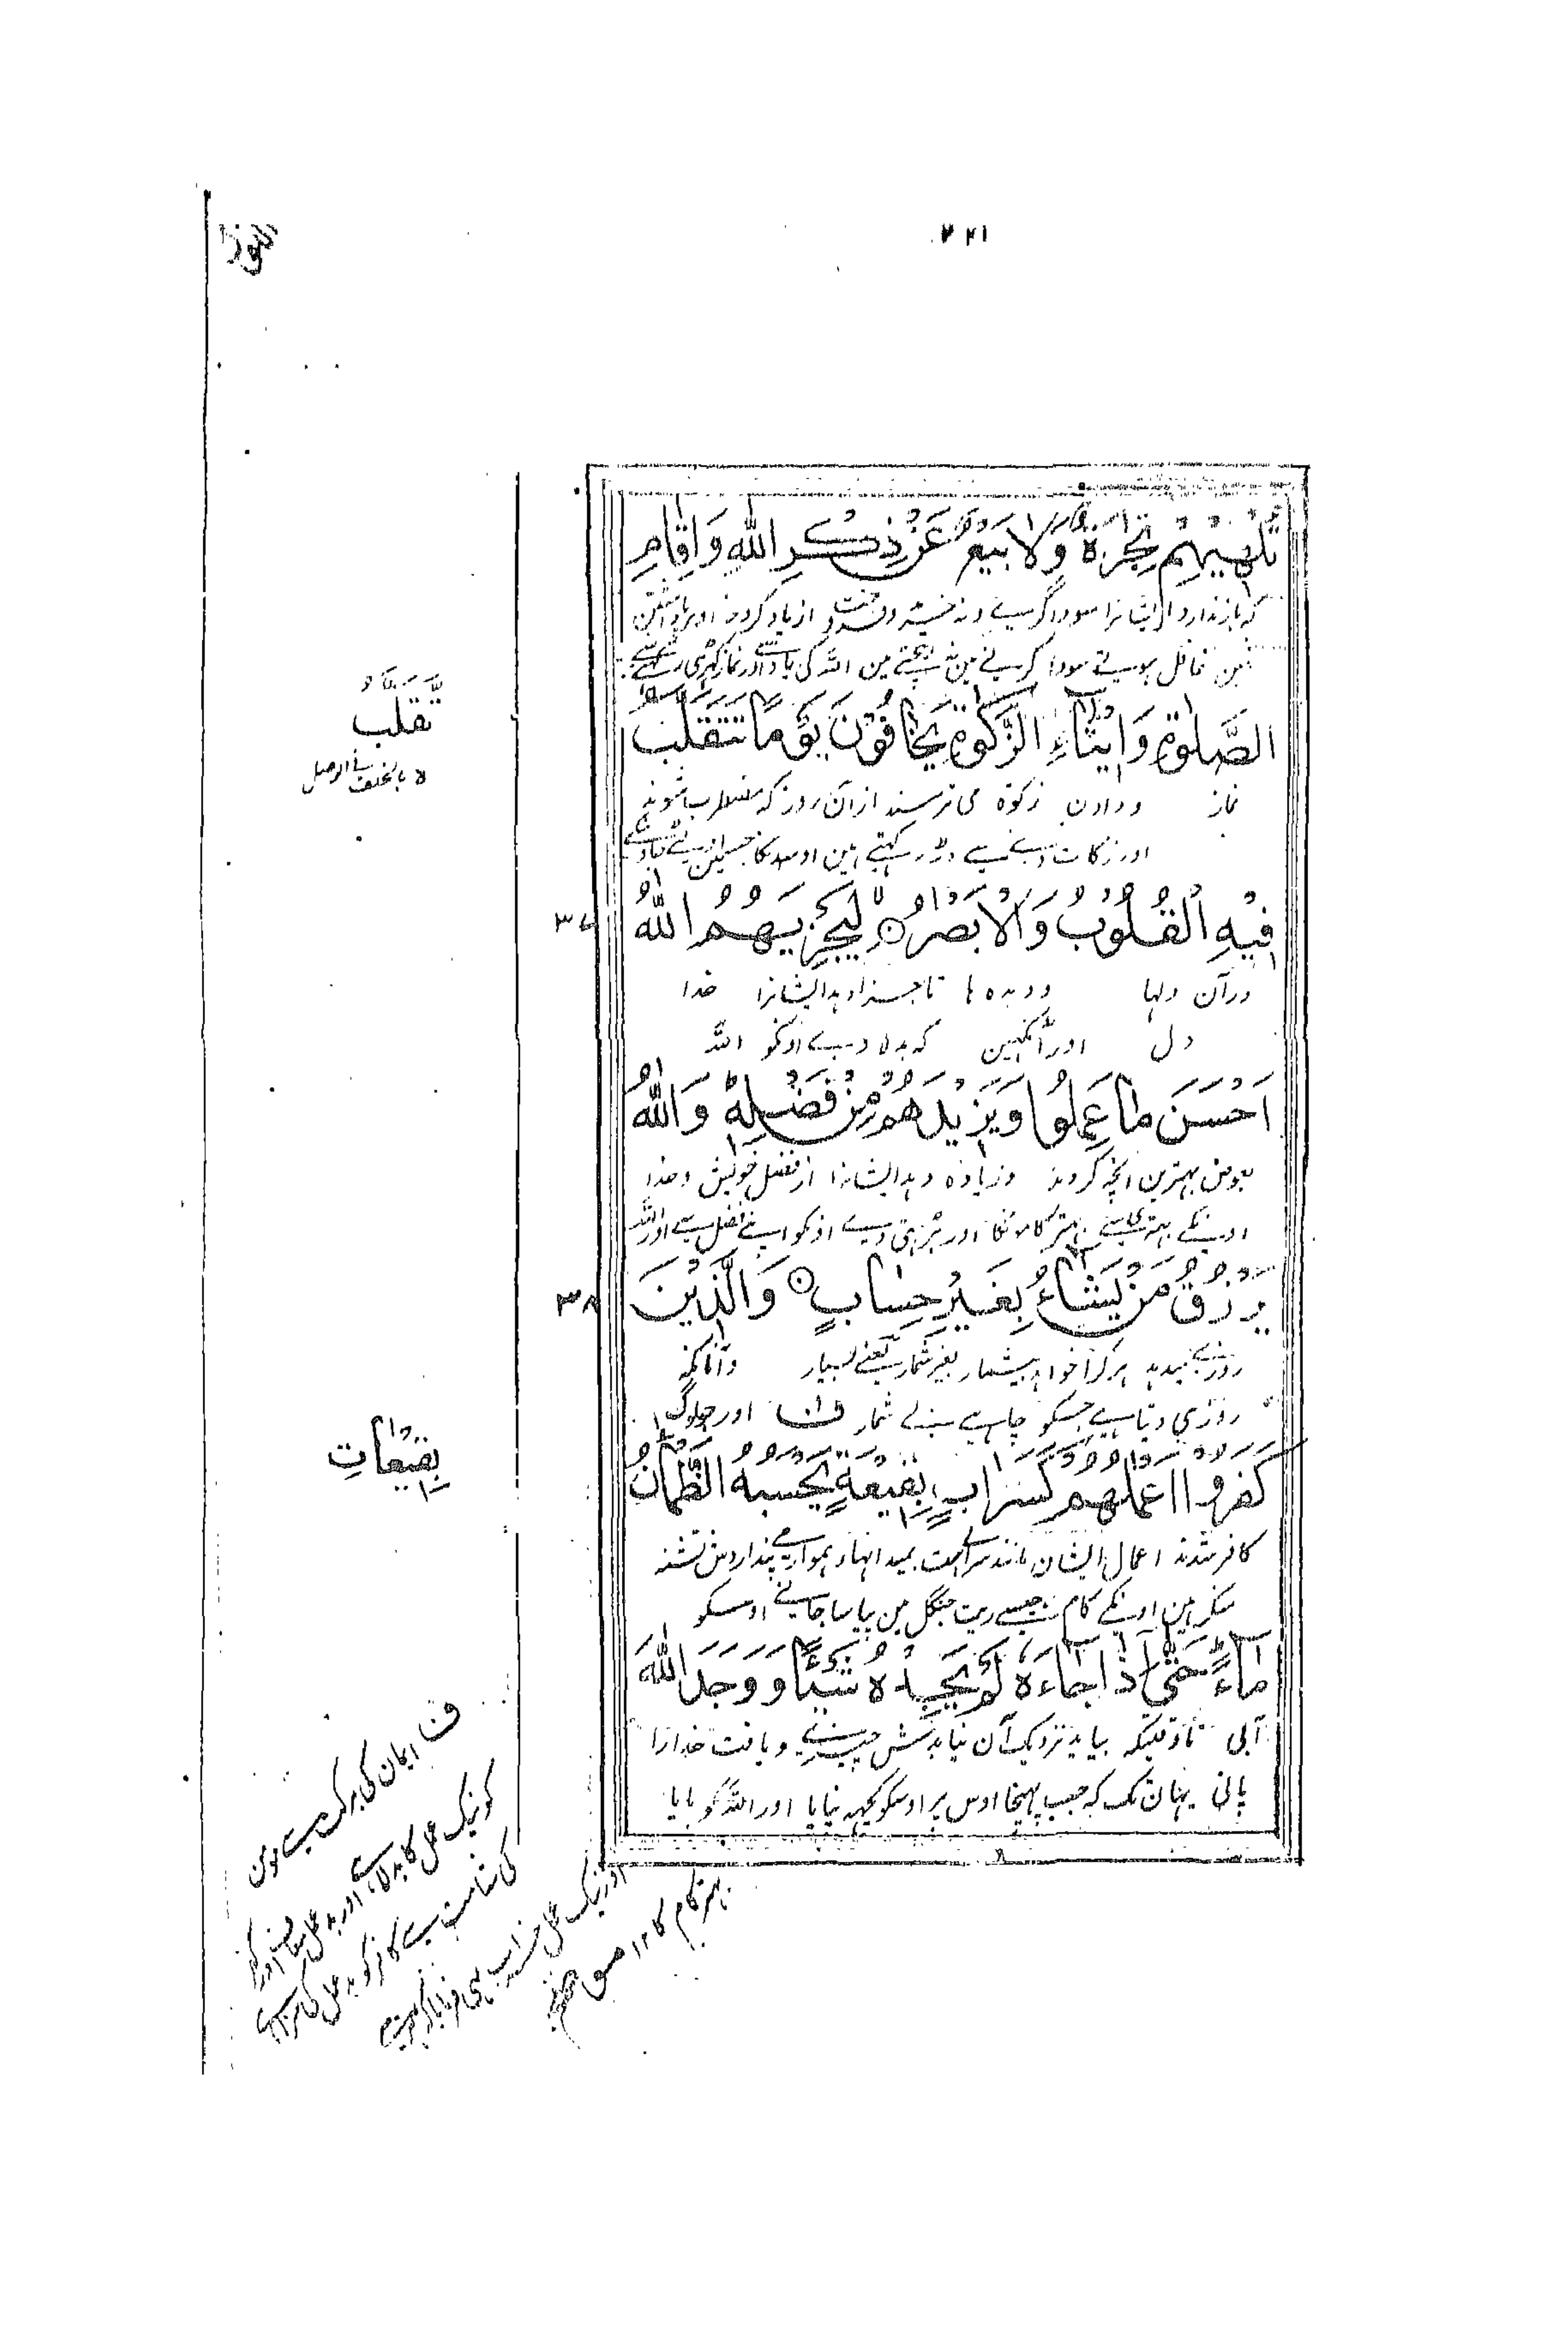 النور
تُلْهِيْهِمْ تِجَارَةٌ وَّلَا بَيْعٌ عَنْ ذِكْرِ اللّٰهِ وَاِقَامِ
که بازندارد ایشانرا سوداگری و نه خرید و فروخت از یاد کردن خدا و برپا داشتن
نہین غافل ہوتے سودا کرنے مین نہ بیچنے مین اللہ کی یاد سے اور نماز کہڑی رکہنے سے
الصَّلٰوةِ وَاِيْتَآءِ الزَّكٰوةِ يَخَافُوْنَ يَوْمًا تَتَقَلَّبُ
نماز و دادن زکوٰة می ترسند از آن روز که مضطرب شوند
اور زکات دینے سے ڈر رکہتے ہین اوسدنکا جسمین
تَّقَلَّبُ
فِيْهِ الْقُلُوْبُ وَالْاَبْصَارُ ۝ لِيَجْزِيَهُمُ اللّٰهُ
٣٧
در آن دلها و دیده ها تا جزا دهد ایشانرا خدا
دل اور آنکہین که بدلا دے اونکو اللہ
اَحْسَنَ مَا عَمِلُوْا وَيَزِيْدَهُمْ مِّنْ فَضْلِهٖ وَاللّٰهُ
بعوض بهترین آنچه کردند و زیاده دهد ایشانرا از فضل خویش و خدا
اونکے بہتر سے بہتر کامونکا اور بڑہتی دے اونکو اپنے فضل سے اور اللہ
يَرْزُقُ مَنْ يَّشَآءُ بِغَيْرِ حِسَابٍ ۝ وَالَّذِيْنَ
٣٨
روزی میدهد هر کرا خواهد بیشمار بغیر شمار یعنی بسیار و آنانکه
روزی دیتا ہے جسکو چاہے بے شمار ف اور جو لوگ
كَفَرُوْا اَعْمَالُهُمْ كَسَرَابٍۭ بِقِيْعَةٍ يَّحْسَبُهُ الظَّمْاٰنُ
بِقِيْعَاتٍ
کافر شدند اعمال ایشان مانند سرابی است بمیدانهاء هموار می پنداردش تشنه
منکر ہین اونکے کام جیسے ریت جنگل مین پیاسا جانے اوسکو
مَآءً حَتّٰٓى اِذَا جَآءَهٗ لَمْ يَجِدْهُ شَيْئًا وَّوَجَدَ اللّٰهَ
آبی تا وقتیکه بیاید نزدیک آن نیابدش چیزی و یافت خدا را
پانی یہان تک کہ جب پہنچا اوس پر اوسکو کچہہ نپایا اور اللہ کو پایا
ف ایمان کی برکت سے مومن
کو نیک عمل کا بدلا ہے اور بد عمل معاف اور کفر
کی شامت سے کافر کو بد عمل کی سزا ہے
اور نیک عمل خراب یہی فرمایا کہ
بہتر کام کا ١٢